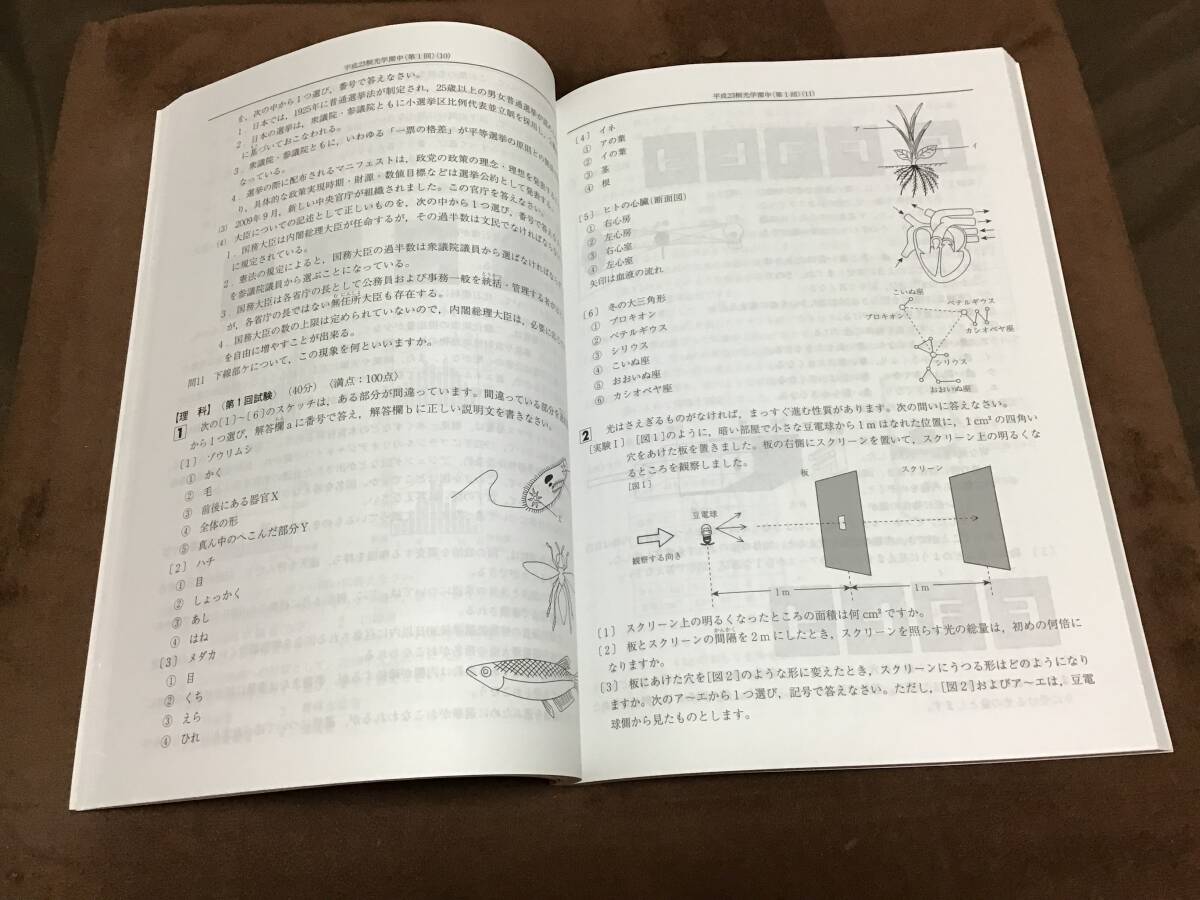 平成23桐光学園中(第1回)(10)
を,次の中から1つ選び,番号で答えなさい。
1.日本では,1925年に普通選挙法が制定され,25歳以上の男女普通選挙が
2.日本の選挙は,衆議院・参議院ともに小選挙区比例代表並立制を採用し,
に基づいておこなわれる。
3.衆議院・参議院ともに,いわゆる「一票の格差」が平等選挙の原則との
なっている。
4.選挙の際に配布されるマニフェストは,政党の政策の理念・理想を発表する
り,具体的な政策実現時期・財源・数値目標などは選挙公約として発表する。
(3) 2009年9月,新しい中央官庁が組織されました。この官庁を答えなさい。
(4) 大臣についての記述として正しいものを,次の中から1つ選び,番号で答え
1.国務大臣は内閣総理大臣が任命するが,その過半数は文民でなければならない
に規定されている。
2.憲法の規定によると,国務大臣の過半数は衆議院議員から選ばなければなら
を参議院議員から選ぶことになっている。
3.国務大臣は各省庁の長として公務員および事務一般を統括・管理する
が,各省庁の長ではない無任所大臣も存在する。
4.国務大臣の数の上限は定められていないので,内閣総理大臣は,必要に
を自由に増やすことが出来る。
問11 下線部ケについて,この現象を何といいますか。
【理 科】〈第1回試験〉(40分)〈満点:100点〉
1 次の〔1〕~〔6〕のスケッチは,ある部分が間違っています。間違っている部分を
から1つ選び,解答欄aに番号で答え,解答欄bに正しい説明文を書きなさい。
〔1〕 ゾウリムシ
① かく
② 毛
③ 前後にある器官X
④ 全体の形
⑤ 真ん中のへこんだ部分Y
〔2〕 ハチ
① 目
② しょっかく
③ あし
④ はね
〔3〕 メダカ
① 目
② くち
③ えら
④ ひれ
平成23桐光学園中(第1回)(11)
〔4〕 イネ
① アの葉
② イの葉
③ 茎
④ 根
ア
イ
〔5〕 ヒトの心臓(断面図)
① 右心房
② 左心房
③ 右心室
④ 左心室
矢印は血液の流れ
〔6〕 冬の大三角形
① プロキオン
② ベテルギウス
③ シリウス
④ こいぬ座
⑤ おおいぬ座
⑥ カシオペヤ座
こいぬ座
プロキオン
ベテルギウス
カシオペヤ座
シリウス
おおいぬ座
2 光はさえぎるものがなければ,まっすぐ進む性質があります。次の問いに答えなさい。
[実験1] [図1]のように,暗い部屋で小さな豆電球から1mはなれた位置に,1cm²の四角い
穴をあけた板を置きました。板の右側にスクリーンを置いて,スクリーン上の明るくな
るところを観察しました。
[図1]
板
スクリーン
豆電球
観察する向き
1m
1m
〔1〕 スクリーン上の明るくなったところの面積は何cm²ですか。
〔2〕 板とスクリーンの間隔を2mにしたとき,スクリーンを照らす光の総量は,初めの何倍に
なりますか。
〔3〕 板にあけた穴を[図2]のような形に変えたとき,スクリーンにうつる形はどのようになり
ますか。次のア~エから1つ選び,記号で答えなさい。ただし,[図2]およびア~エは,豆電
球側から見たものとします。